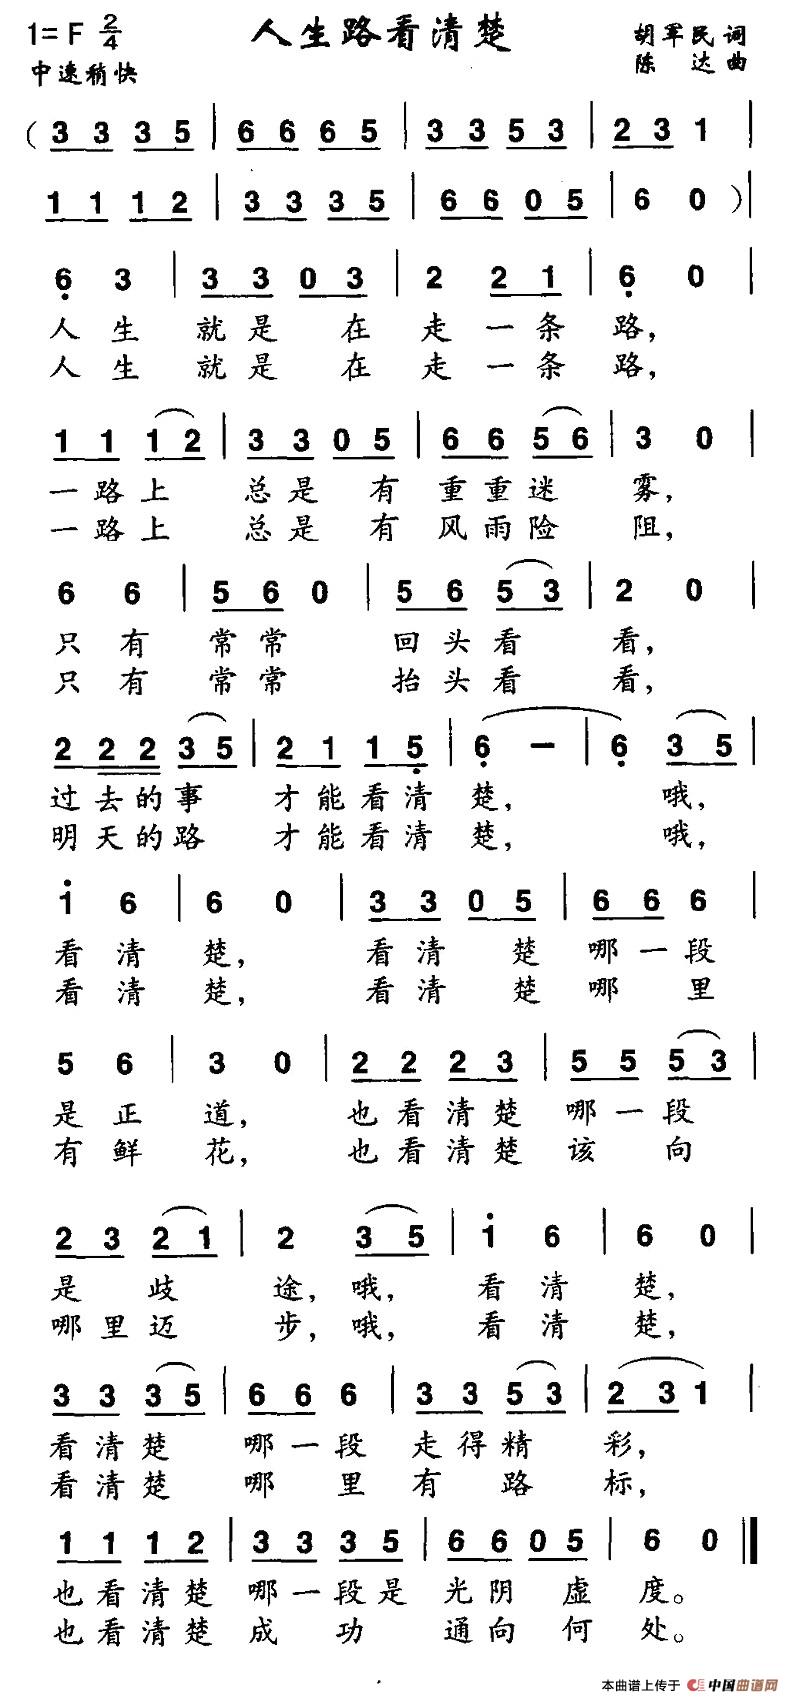 人生路看清楚
1=F 2/4
胡军民 词
中速稍快
陈达 曲
(3 3 3 5 | 6 6 6 5 | 3 3 5 3 | 2 3 1 |
1 1 1 2 | 3 3 3 5 | 6 6 0 5 | 6 0 )|
6̣ 3 | 3 3 0 3 | 2 2 1 | 6̣ 0 |
人 生 就 是 在 走 一 条 路，
人 生 就 是 在 走 一 条 路，
1 1 1 2 | 3 3 0 5 | 6 6 5 6 | 3 0 |
一 路 上 总 是 有 重 重 迷 雾，
一 路 上 总 是 有 风 雨 险 阻，
6 6 | 5 6 0 | 5 6 5 3 | 2 0 |
只 有 常 常 回 头 看 看，
只 有 常 常 抬 头 看 看，
2 2 2 3 5 | 2 1 1 5̣ | 6̣ － | 6̣ 3 5 |
过 去 的 事 才 能 看 清 楚， 哦，
明 天 的 路 才 能 看 清 楚， 哦，
1̇ 6 | 6 0 | 3 3 0 5 | 6 6 6 |
看 清 楚， 看 清 楚 哪 一 段
看 清 楚， 看 清 楚 哪 里
5 6 | 3 0 | 2 2 2 3 | 5 5 5 3 |
是 正 道， 也 看 清 楚 哪 一 段
有 鲜 花， 也 看 清 楚 该 向
2 3 2 1 | 2 3 5 | 1̇ 6 | 6 0 |
是 歧 途， 哦， 看 清 楚，
哪 里 迈 步， 哦， 看 清 楚，
3 3 3 5 | 6 6 6 | 3 3 5 3 | 2 3 1 |
看 清 楚 哪 一 段 走 得 精 彩，
看 清 楚 哪 里 有 路 标，
1 1 1 2 | 3 3 3 5 | 6 6 0 5 | 6 0 ‖
也 看 清 楚 哪 一 段 是 光 阴 虚 度。
也 看 清 楚 成 功 通 向 何 处。
本曲谱上传于 中国曲谱网